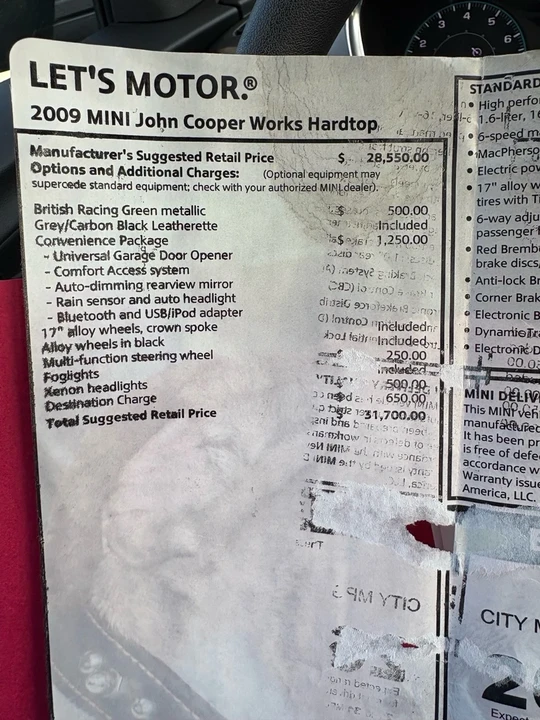 LET'S MOTOR.®
2009 MINI John Cooper Works Hardtop
Manufacturer's Suggested Retail Price $ 28,550.00
Options and Additional Charges: (Optional equipment may
supercede standard equipment; check with your authorized MINI dealer).
British Racing Green metallic $ 500.00
Grey/Carbon Black Leatherette Included
Convenience Package $ 1,250.00
- Universal Garage Door Opener
- Comfort Access system
- Auto-dimming rearview mirror
- Rain sensor and auto headlight
- Bluetooth and USB/iPod adapter
17" alloy wheels, crown spoke Included
Alloy wheels in black Included
Multi-function steering wheel 250.00
Foglights
Xenon headlights 500.00
Destination Charge 650.00
Total Suggested Retail Price $ 31,700.00
STANDARD
• High perfo
1.6-liter, 16
• 6-speed m
• MacPherso
• Electric pow
• 17" alloy w
tires with Ti
• 6-way adju
passenger
• Red Brembo
brake discs,
• Anti-lock Br
• Corner Brak
• Electronic B
• Dynamic
• Electronic D
MINI DELIV
This MINI veh
manufactured
It has been pr
is free of defe
accordance w
Warranty issue
America, LLC.
CITY M
2
Expect